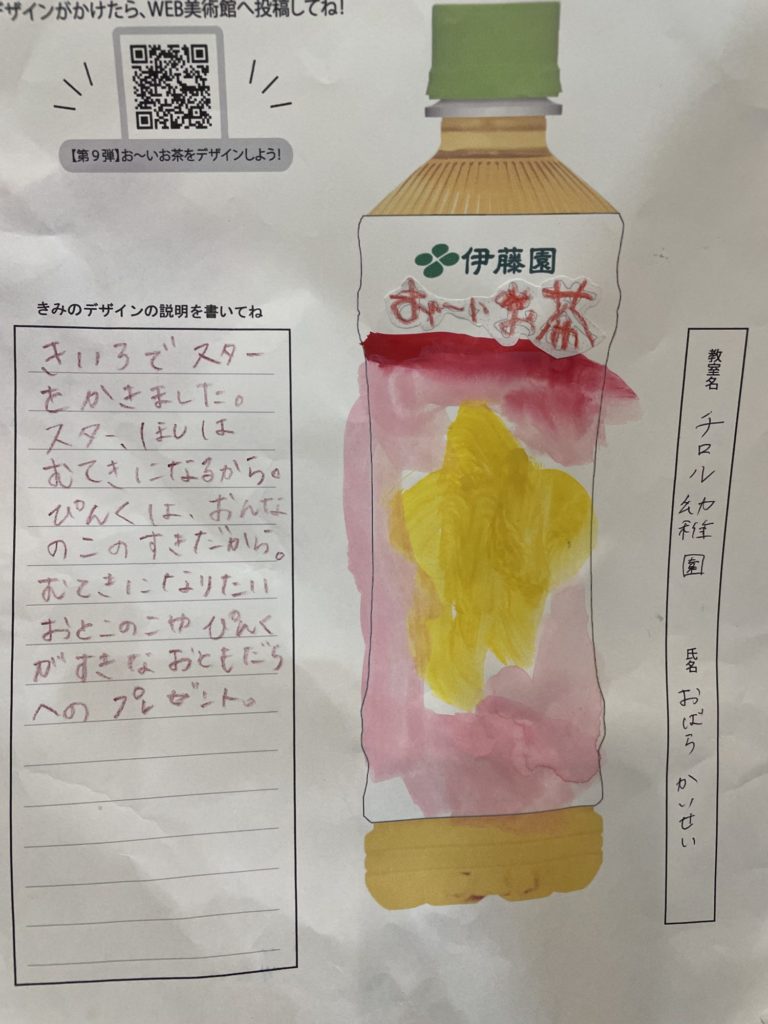 デザインがかけたら、WEB美術館へ投稿してね!
【第9弾】お〜いお茶をデザインしよう!
伊藤園
お〜いお茶
きみのデザインの説明を書いてね
きいろでスター
をかきました。
スター、ほしは
むてきになるから。
ぴんくは、おんな
のこのすきだから。
むてきになりたい
おとこのこやぴんく
がすきなおともだち
へのプレゼント。
教室名 チロル幼稚園
氏名 おばら かいせい